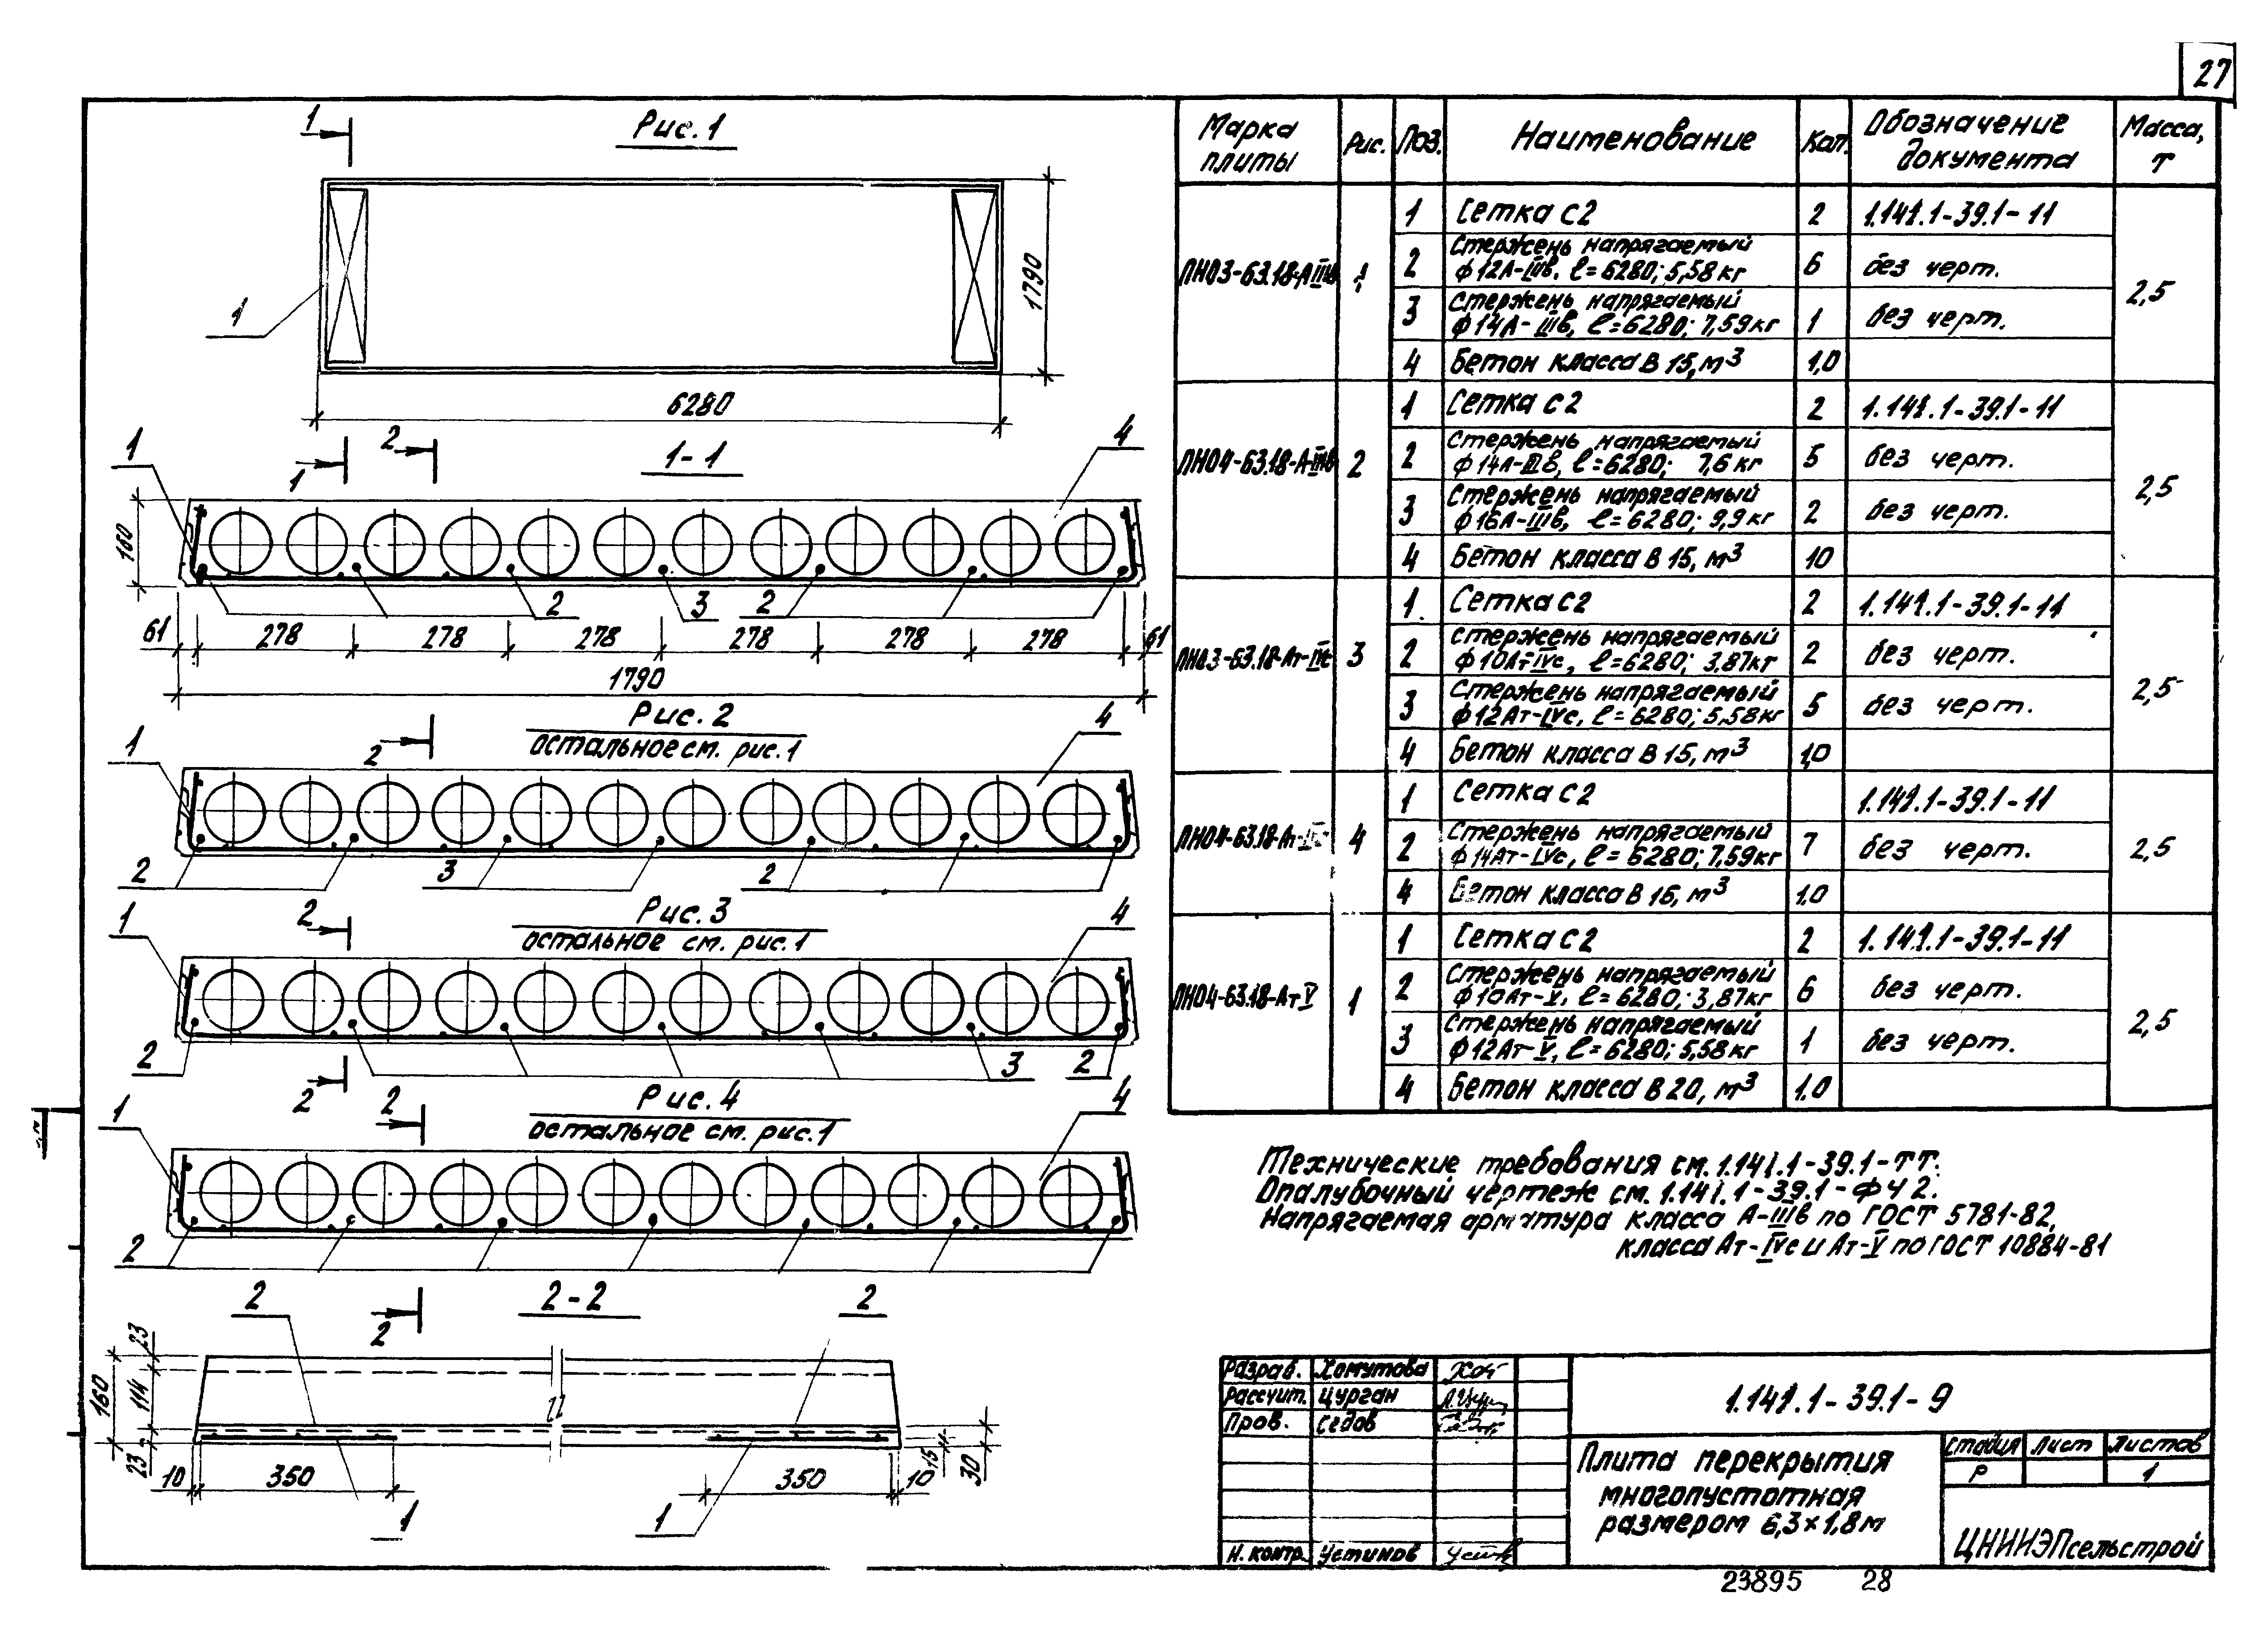 27
Рис. 1
1
1
1790
6280
1-1
1
2
1
4
160
2
3
2
61
278
278
278
278
278
278
61
1790
Рис. 2
остальное см. рис. 1
1
2
4
2
3
2
Рис. 3
остальное см. рис. 1
1
2
4
2
3
2
2
Рис. 4
остальное см. рис. 1
1
2
4
2
2
2-2
2
2
23
114
160
23
10
350
350
10
15
30
1
1
Марка плиты
Рис.
Поз.
Наименование
Кол.
Обозначение документа
Масса, т
ПНО3-63.18-АIIIв
1
1 Сетка С2 2 1.141.1-39.1-11
2 Стержень напрягаемый
ф12А-IIIв, ℓ=6280; 5,58 кг 6 без черт.
3 Стержень напрягаемый
ф14А-IIIв, ℓ=6280; 7,59кг 1 без черт.
4 Бетон класса В 15, м³ 1,0
2,5
ПНО4-63.18-А-IIIв
2
1 Сетка С2 2 1.141.1-39.1-11
2 Стержень напрягаемый
ф14А-IIIв, ℓ=6280; 7,6 кг 5 без черт.
3 Стержень напрягаемый
ф16А-IIIв, ℓ=6280; 9,9 кг 2 без черт.
4 Бетон класса В 15, м³ 10
2,5
ПНО3-63.18-Ат-IVс
3
1. Сетка С2 2 1.141.1-39.1-11
2 Стержень напрягаемый
ф10Ат-IVс, ℓ=6280; 3,87кг 2 без черт.
3 Стержень напрягаемый
ф12Ат-IVс, ℓ=6280; 5,58кг 5 без черт.
4 Бетон класса В 15, м³ 1,0
2,5
ПНО4-63.18-Ат-
4
1 Сетка С2 1.141.1-39.1-11
2 Стержень напрягаемый
ф14Ат-IVс, ℓ=6280; 7,59кг 7 без черт.
4 Бетон класса В 15, м³ 1.0
2,5
ПНО4-63.18-Ат V
1
1 Сетка С2 2 1.141.1-39.1-11
2 Стержень напрягаемый
ф10Ат-V, ℓ=6280; 3,87кг 6 без черт.
3 Стержень напрягаемый
ф12Ат-V, ℓ=6280; 5,58кг 1 без черт.
4 Бетон класса В 20, м³ 1.0
2,5
Технические требования см. 1.141.1-39.1-ТТ.
Опалубочный чертеж см. 1.141.1-39.1-ФЧ 2.
Напрягаемая арматура класса А-IIIв по ГОСТ 5781-82,
класса Ат-IVс и Ат-V по ГОСТ 10884-81
Разраб. Хомутова
Рассчит. Цурган
Пров. Седов
Н. контр. Устинов
1.141.1-39.1-9
Плита перекрытия
многопустотная
размером 6,3×1,8м
Стадия Лист Листов
Р 1
ЦНИИЭПсельстрой
23895 28